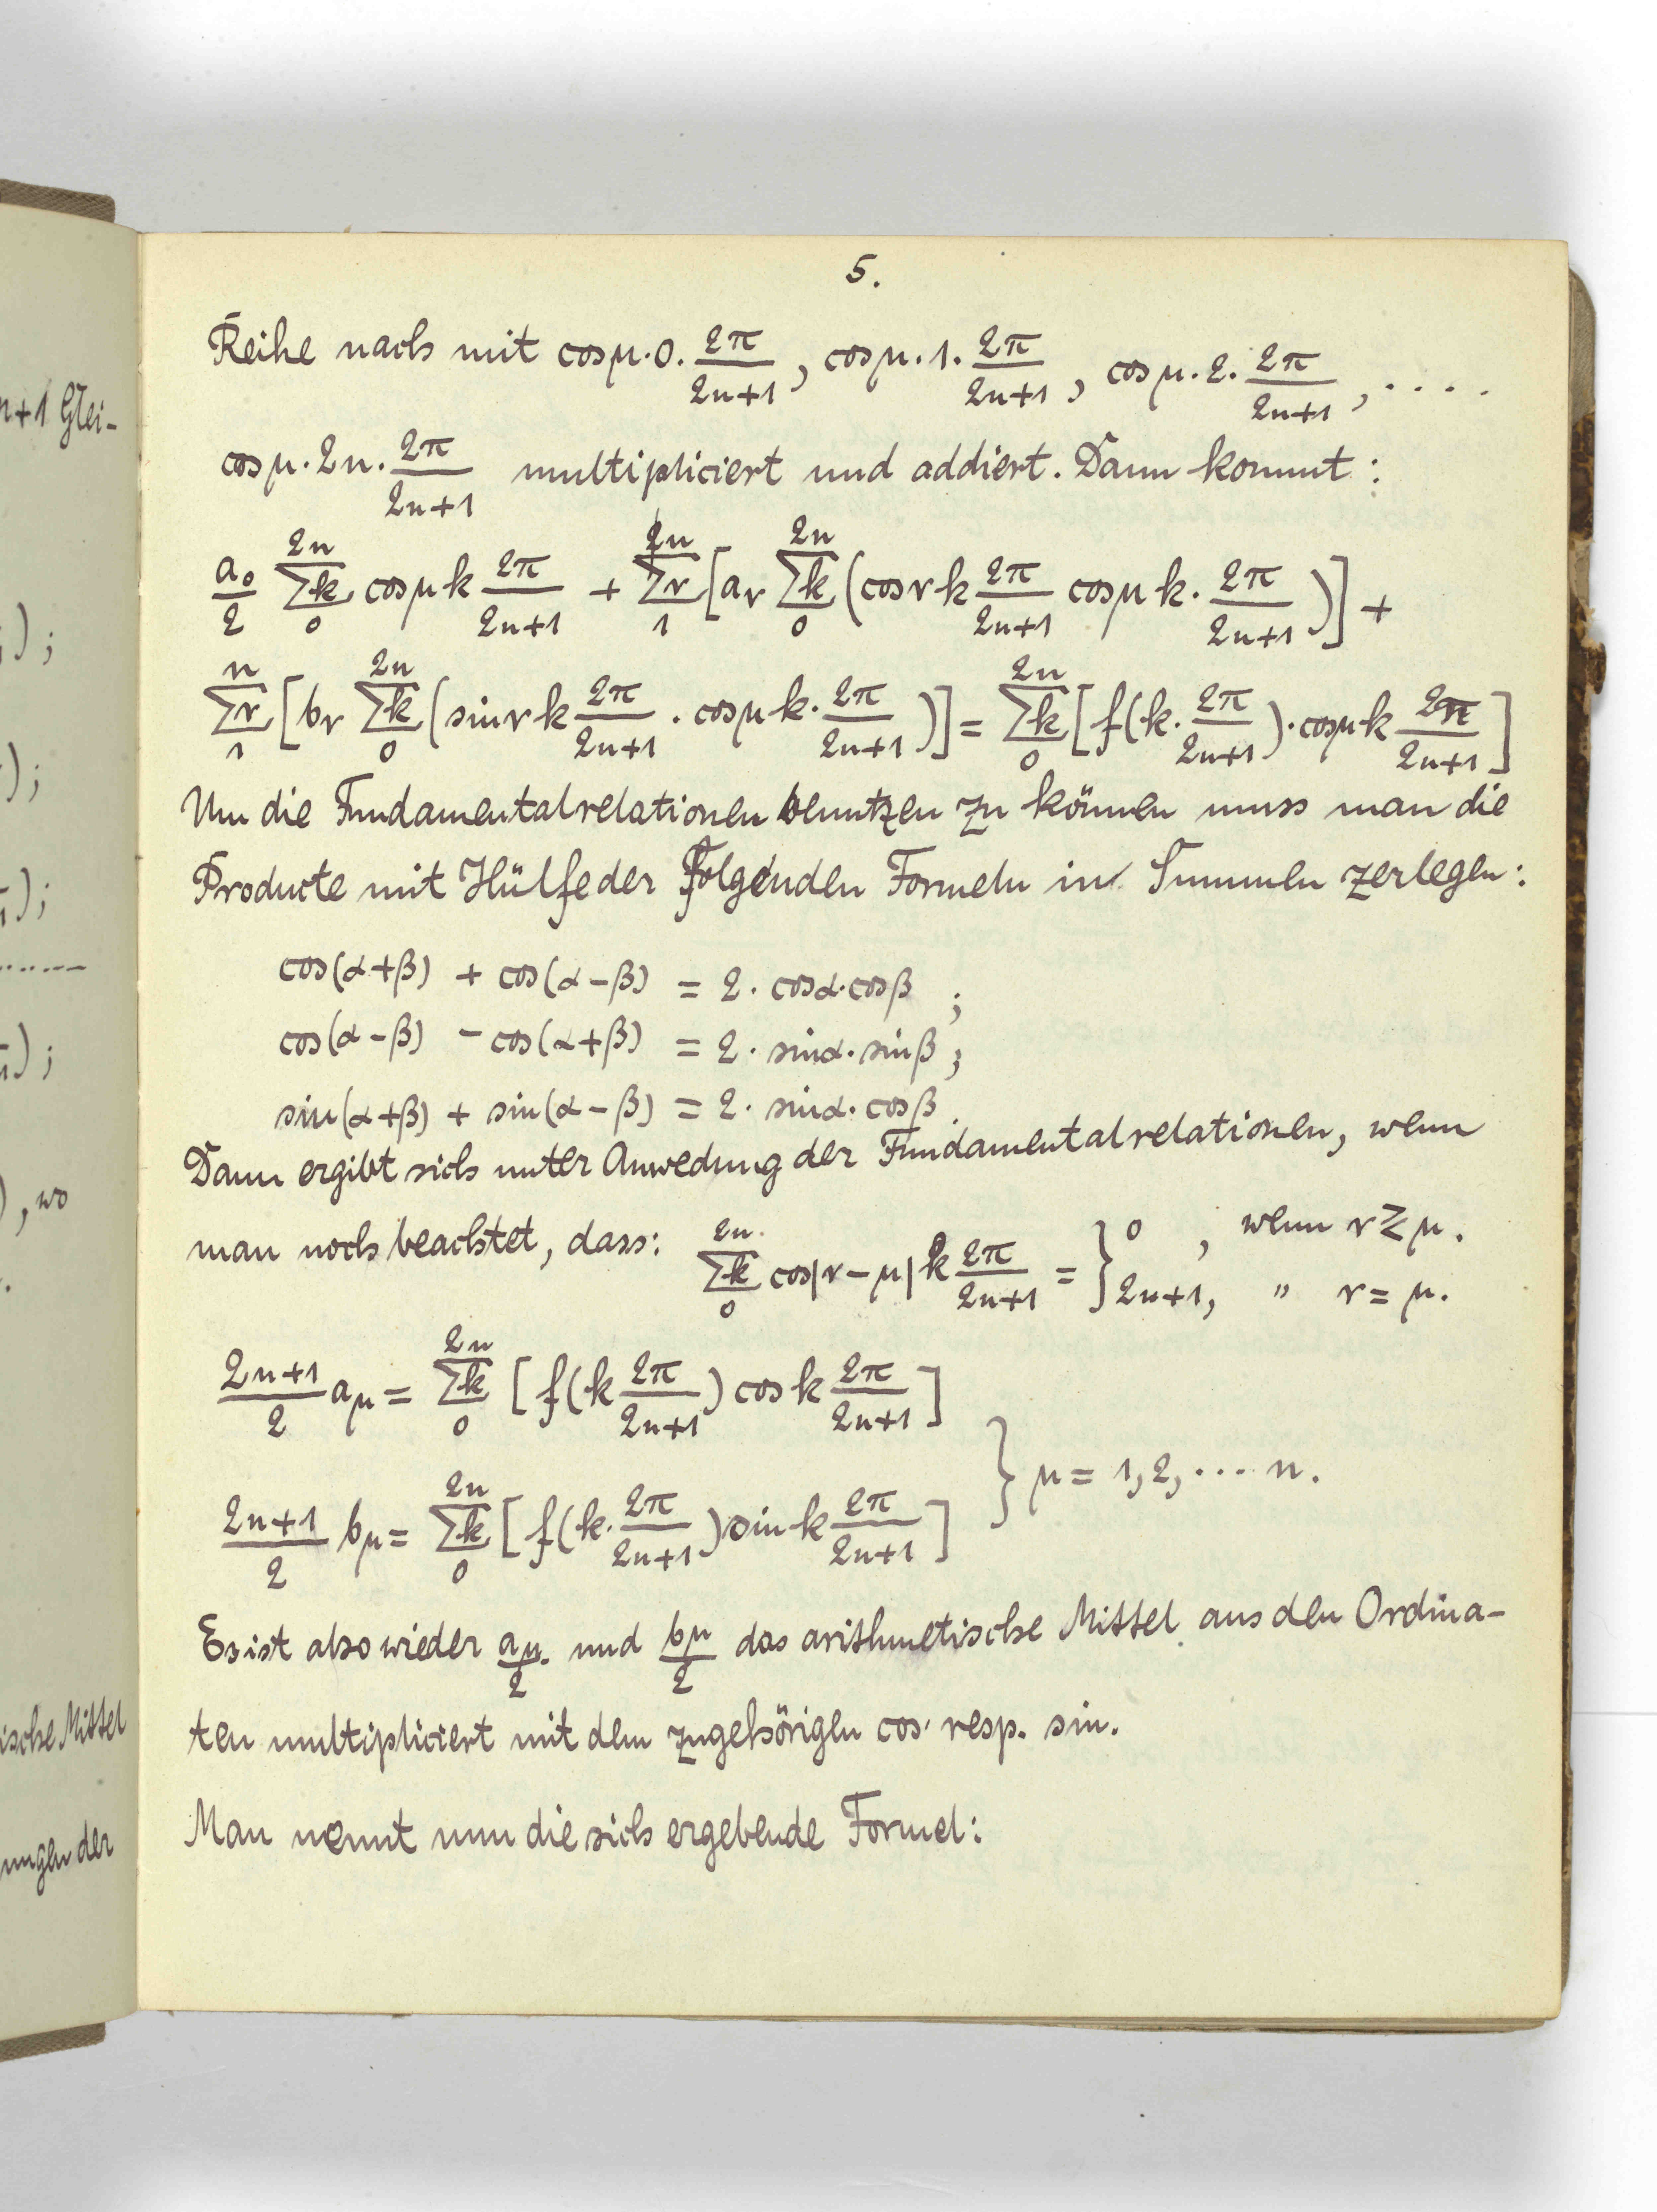 5.
Reihe nach mit cos μ·0·\frac{2π}{2n+1}, cos μ·1·\frac{2π}{2n+1}, cos μ·2·\frac{2π}{2n+1}, ····
cos μ·2n·\frac{2π}{2n+1} multipliciert und addiert. Dann kommt:
\frac{a_0}{2} \sum_0^{2n}k cos μ k \frac{2π}{2n+1} + \sum_1^{2n}r [a_r \sum_0^{2n}k (cos r k \frac{2π}{2n+1} cos μ k·\frac{2π}{2n+1})] +
\sum_1^{n}r [b_r \sum_0^{2n}k (sin r k \frac{2π}{2n+1} · cos μ k·\frac{2π}{2n+1})] = \sum_0^{2n}k [f(k·\frac{2π}{2n+1})·cos μ k \frac{2π}{2n+1}]
Um die Fundamentalrelationen benutzen zu können muss man die
Producte mit Hülfe der folgenden Formeln in Summen zerlegen:
cos(α+β) + cos(α-β) = 2· cos α·cos β ;
cos(α-β) - cos(α+β) = 2· sin α· sin β ;
sin(α+β) + sin(α-β) = 2· sin α· cos β .
Dann ergibt sich unter Anwedung der Fundamentalrelationen, wenn
man noch beachtet, dass: \sum_0^{2n}k cos|r-μ| k \frac{2π}{2n+1} = } 0 , wenn r ≷ μ.
2n+1, " r = μ.
\frac{2n+1}{2} a_μ = \sum_0^{2n}k [f(k \frac{2π}{2n+1}) cos k \frac{2π}{2n+1}]
} μ = 1,2,···· n.
\frac{2n+1}{2} b_μ = \sum_0^{2n}k [f(k·\frac{2π}{2n+1}) sin k \frac{2π}{2n+1}]
Es ist also wieder \frac{a_μ}{2} und \frac{b_μ}{2} das arithmetische Mittel aus den Ordina-
ten multipliciert mit dem zugehörigen cos· resp. sin.
Man nennt nun die sich ergebende Formel:
n+1 Glei-
);
);
);
......
);
), wo
ische Mittel
ungen der